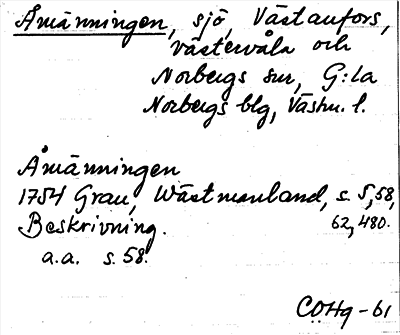 Åmänningen, sjö, Västanfors,
Västervåla och
Norbergs snr, G:la
Norbergs blg, Västm. l.
Åmänningen
1754 Grau, Wästmanland, s. 5, 58,
62, 480.
Beskrivning.
a.a. s. 58.
COHg-61